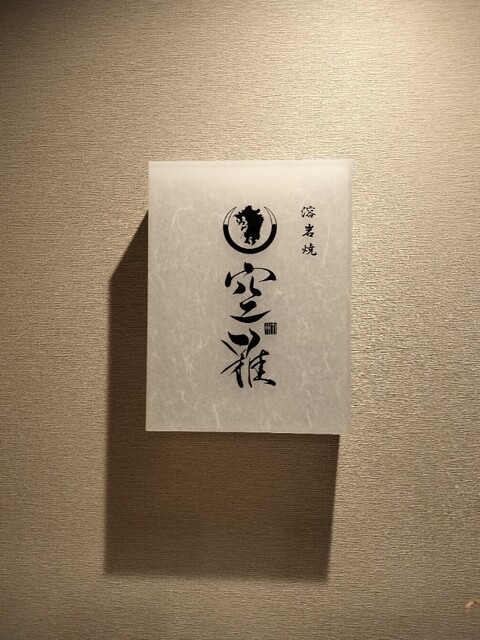 溶岩焼
空羅